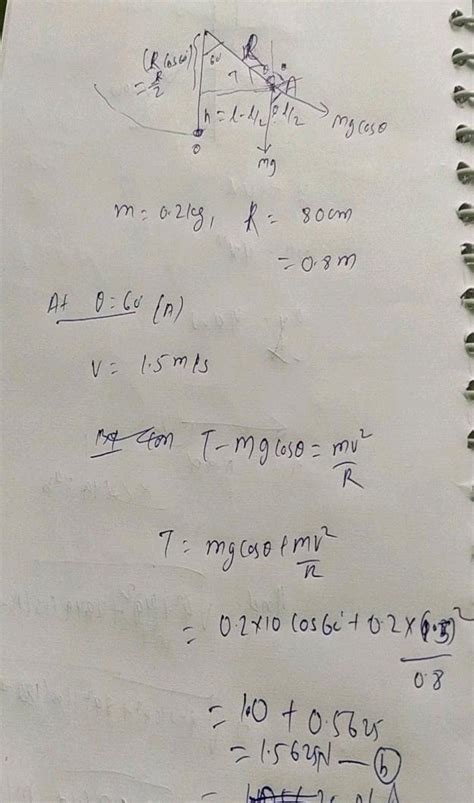 (R cos60°
60
= R/2
T
R
A
h = l - l/2
θ l/2
mg cosθ
θ
mg
m = 0.2kg, R = 80cm
= 0.8m
At θ=60° (A)
v = 1.5m/s
T - mg cosθ = mv²/R
T = mg cosθ + mv²/R
= 0.2×10 cos60° + 0.2×(1.5)²/0.8
= 1.0 + 0.5625
= 1.5625N — (b)
=